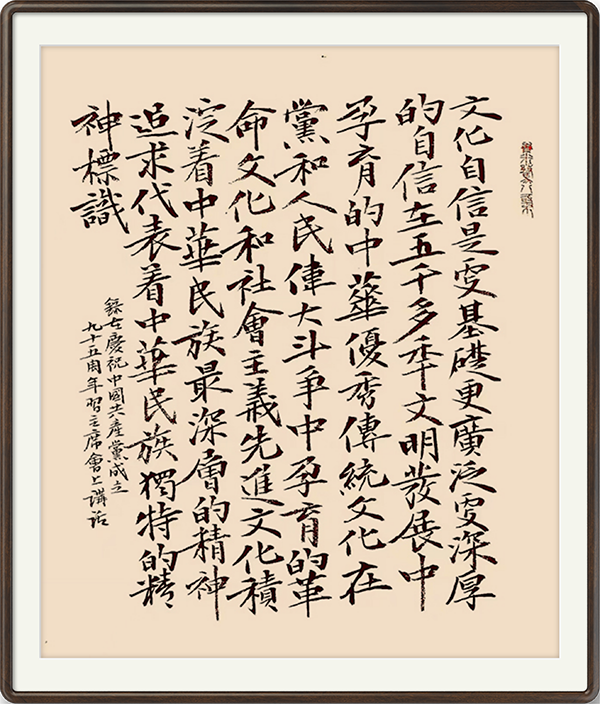 文化自信是更基礎更廣泛更深厚
的自信在五千多秊文明發展中
孕育的中華優秀傳統文化在
黨和人民偉大斗争中孕育的革
命文化和社會主義先進文化積
淀着中華民族最深層的精神
追求代表着中華民族獨特的精
神標識
錄在慶祝中國共產黨成立
九十五周年習主席會上講話